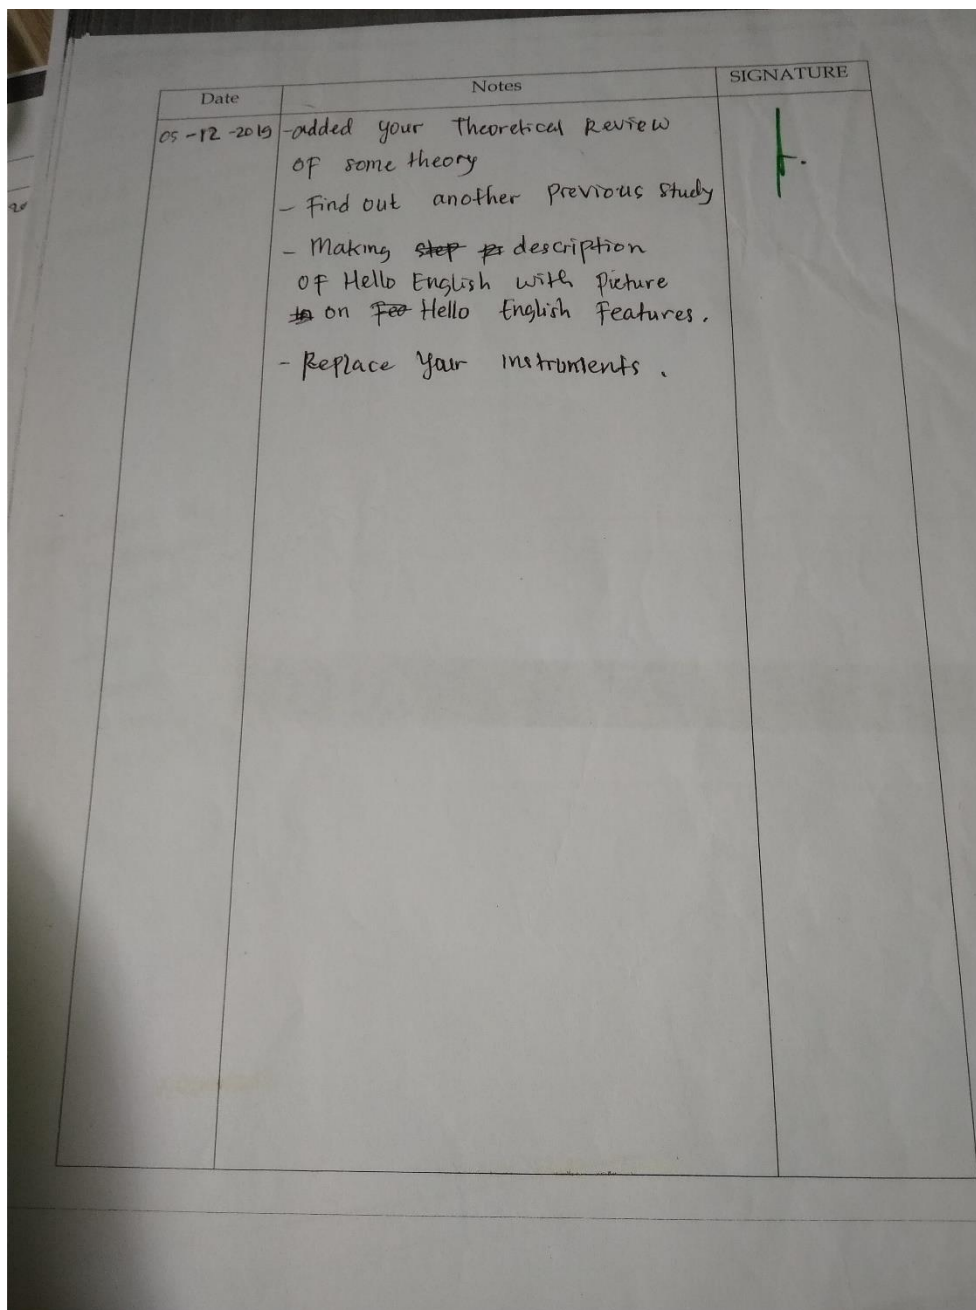 Date Notes SIGNATURE
05-12-2019 -added your Theoretical Review
of some theory
- Find out another previous study
- Making step description
of Hello English with picture
on Hello English features.
- Replace your instruments.
20